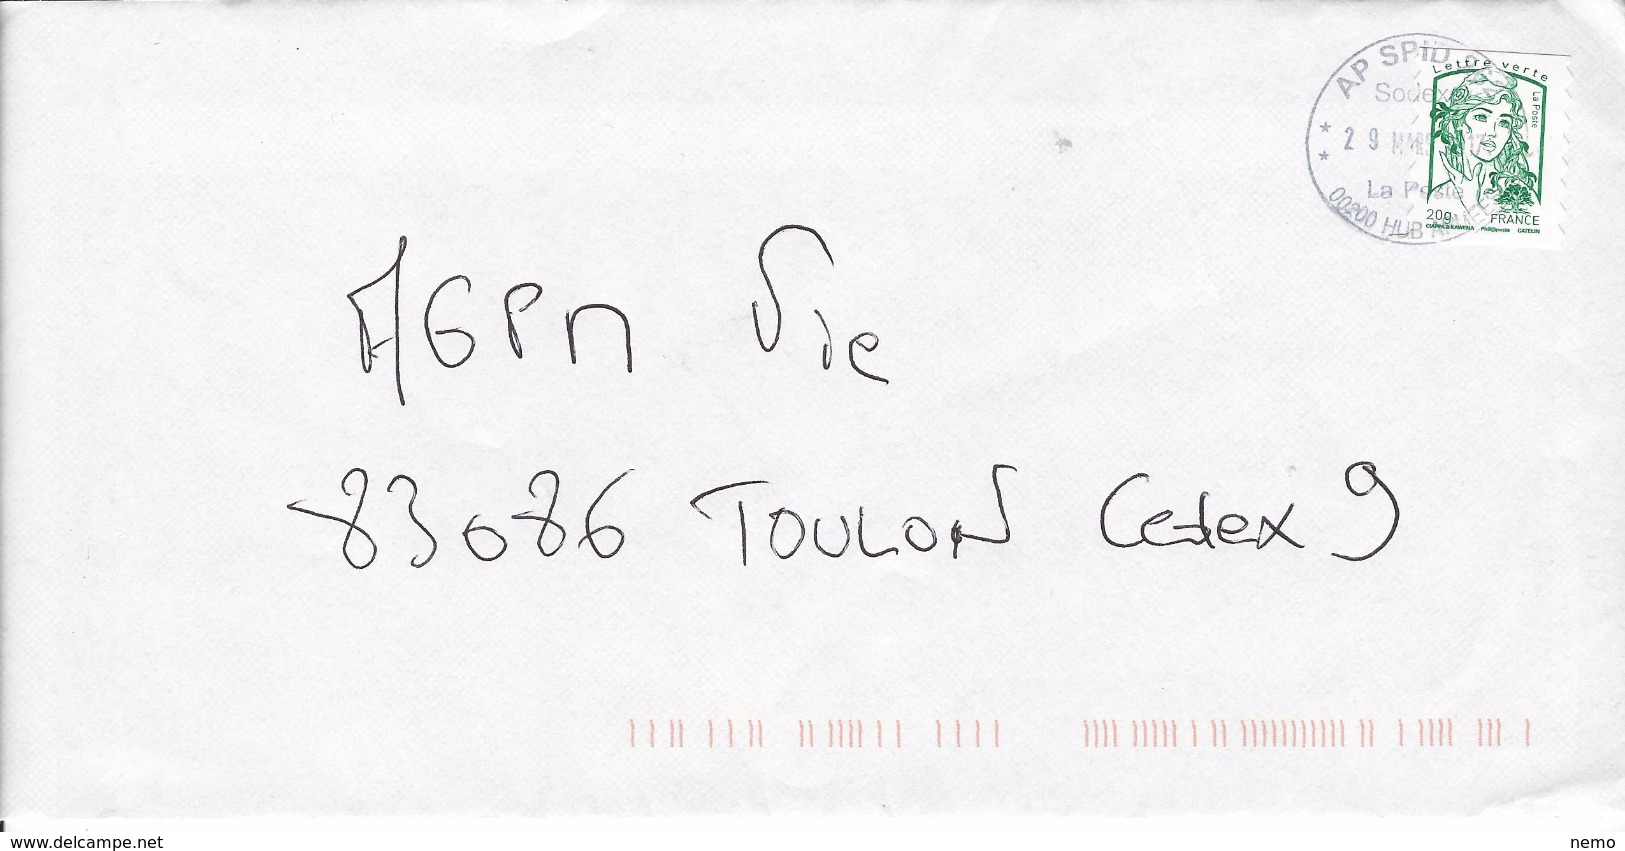 AP SPID
Sodex
29 MARS 17
La Poste
00200 HUB ARMEES
Lettre verte
La Poste
20g FRANCE
CIAPPA & KAWENA Phil@poste CATELIN
AGPM Vie
83086 TOULON Cedex 9
www.delcampe.net nemo